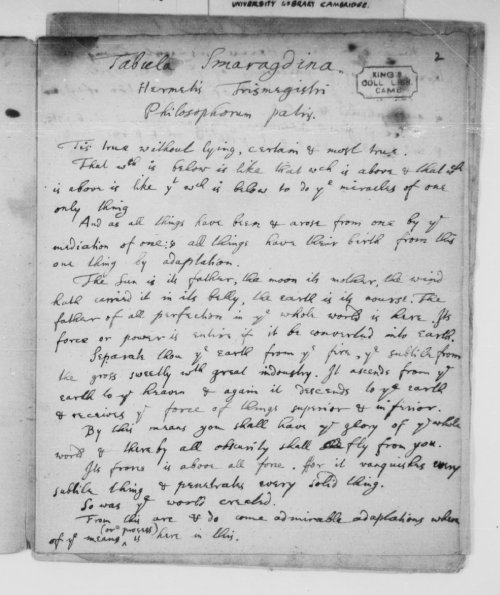 UNIVERSITY LIBRARY CAMBRIDGE.
2
Tabula Smaragdina.
KING'S
COLL LIBR.
CAMB
Hermetis Trismegistri
Philosophorum patris.
Tis true without lying, certain & most true.
That wch is below is like that wch is above & that wch
is above is like yt wch is below to do ye miracles of one
only thing
And as all things have been & arose from one by ye
mediation of one: so all things have their birth from this
one thing by adaptation.
The Sun is its father, the moon its mother, the wind
hath carried it in its belly, the earth is its nourse. The
father of all perfection in ye whole world is here. Its
force or power is entire if it be converted into earth.
Separate thou ye earth from ye fire, ye subtile from
the gross sweetly wth great indoustry. It ascends from ye
earth to ye heaven & again it descends to ye earth
& receives ye force of things superior & inferior.
By this means you shall have ye glory of ye whole
world & thereby all obscurity shall fly from you.
Its force is above all force. ffor it vanquishes every
subtile thing & penetrates every solid thing.
So was ye world created.
From this are & do come admirable adaptations whereof
of ye means (or process) is here in this.